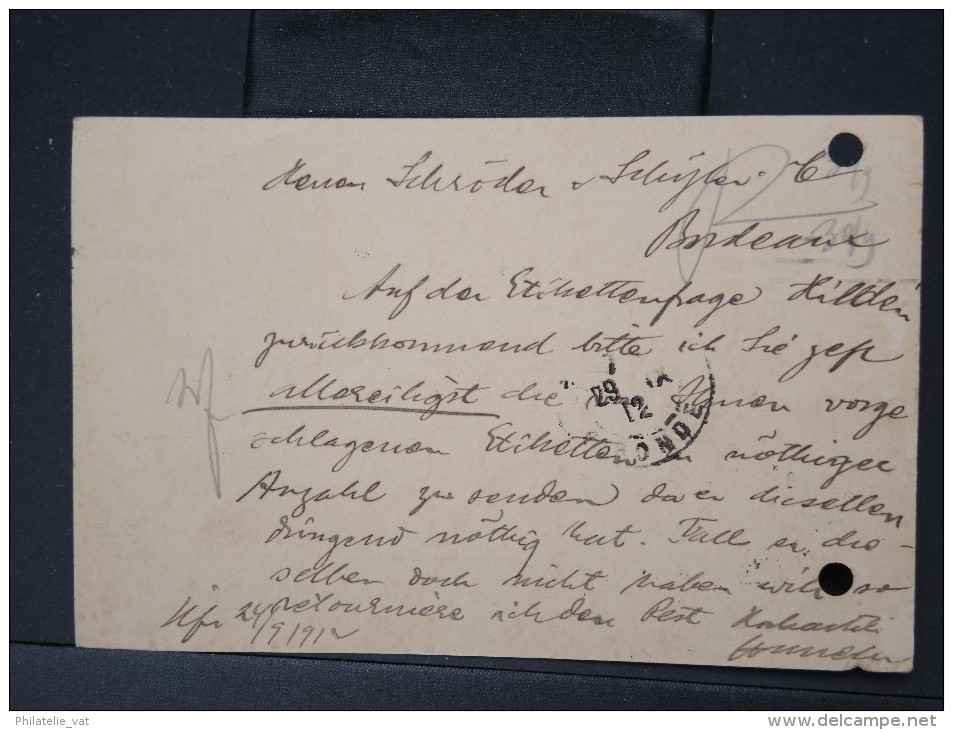 Herren Schröder & Schÿler & Co
Bordeaux
Auf der Etikettenfrage Hildén
zurückkommend bitte ich Sie gefl
allereiligst die von Ihnen vorge
schlagenen Etiketten in nöthiger
Anzahl zu senden da er dieselben
dringend nöthig hat. Fall er die-
selben doch nicht haben will so
retourniere ich den Rest Hochachti
24/9/912
29 12
ONDE
30/9
Philatelie_vat
http://www.delcampe.net